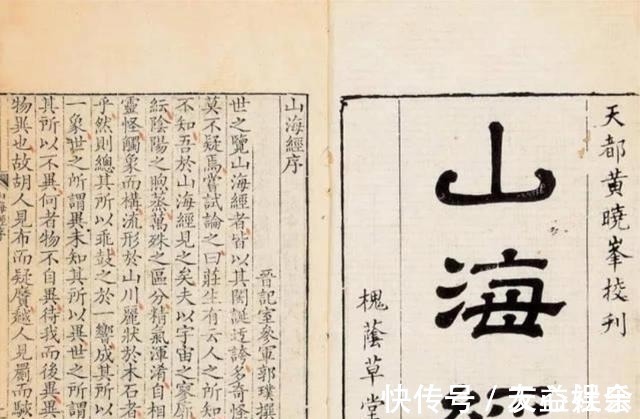 天都黃曉峯校刊
山海
槐蔭草堂
山海經序
晉記室參軍郭璞撰
世之覽山海經者皆以其閎誕迂誇多奇怪
莫不疑焉嘗試論之曰莊生有云人之所知
不知吾於山海經見之矣夫以宇宙之寥廓
紜陰陽之煦蒸萬殊之區分精氣渾淆自相
靈怪觸象而構流形於山川麗狀於木石者
乎然則總其所以乖鼓之於一響成其所
一象世之所謂異未知其所以異世之所謂
其所以不異何者物不自異待我而後異異
物異也故胡人見布而疑黂越人見罽而駭
快传号